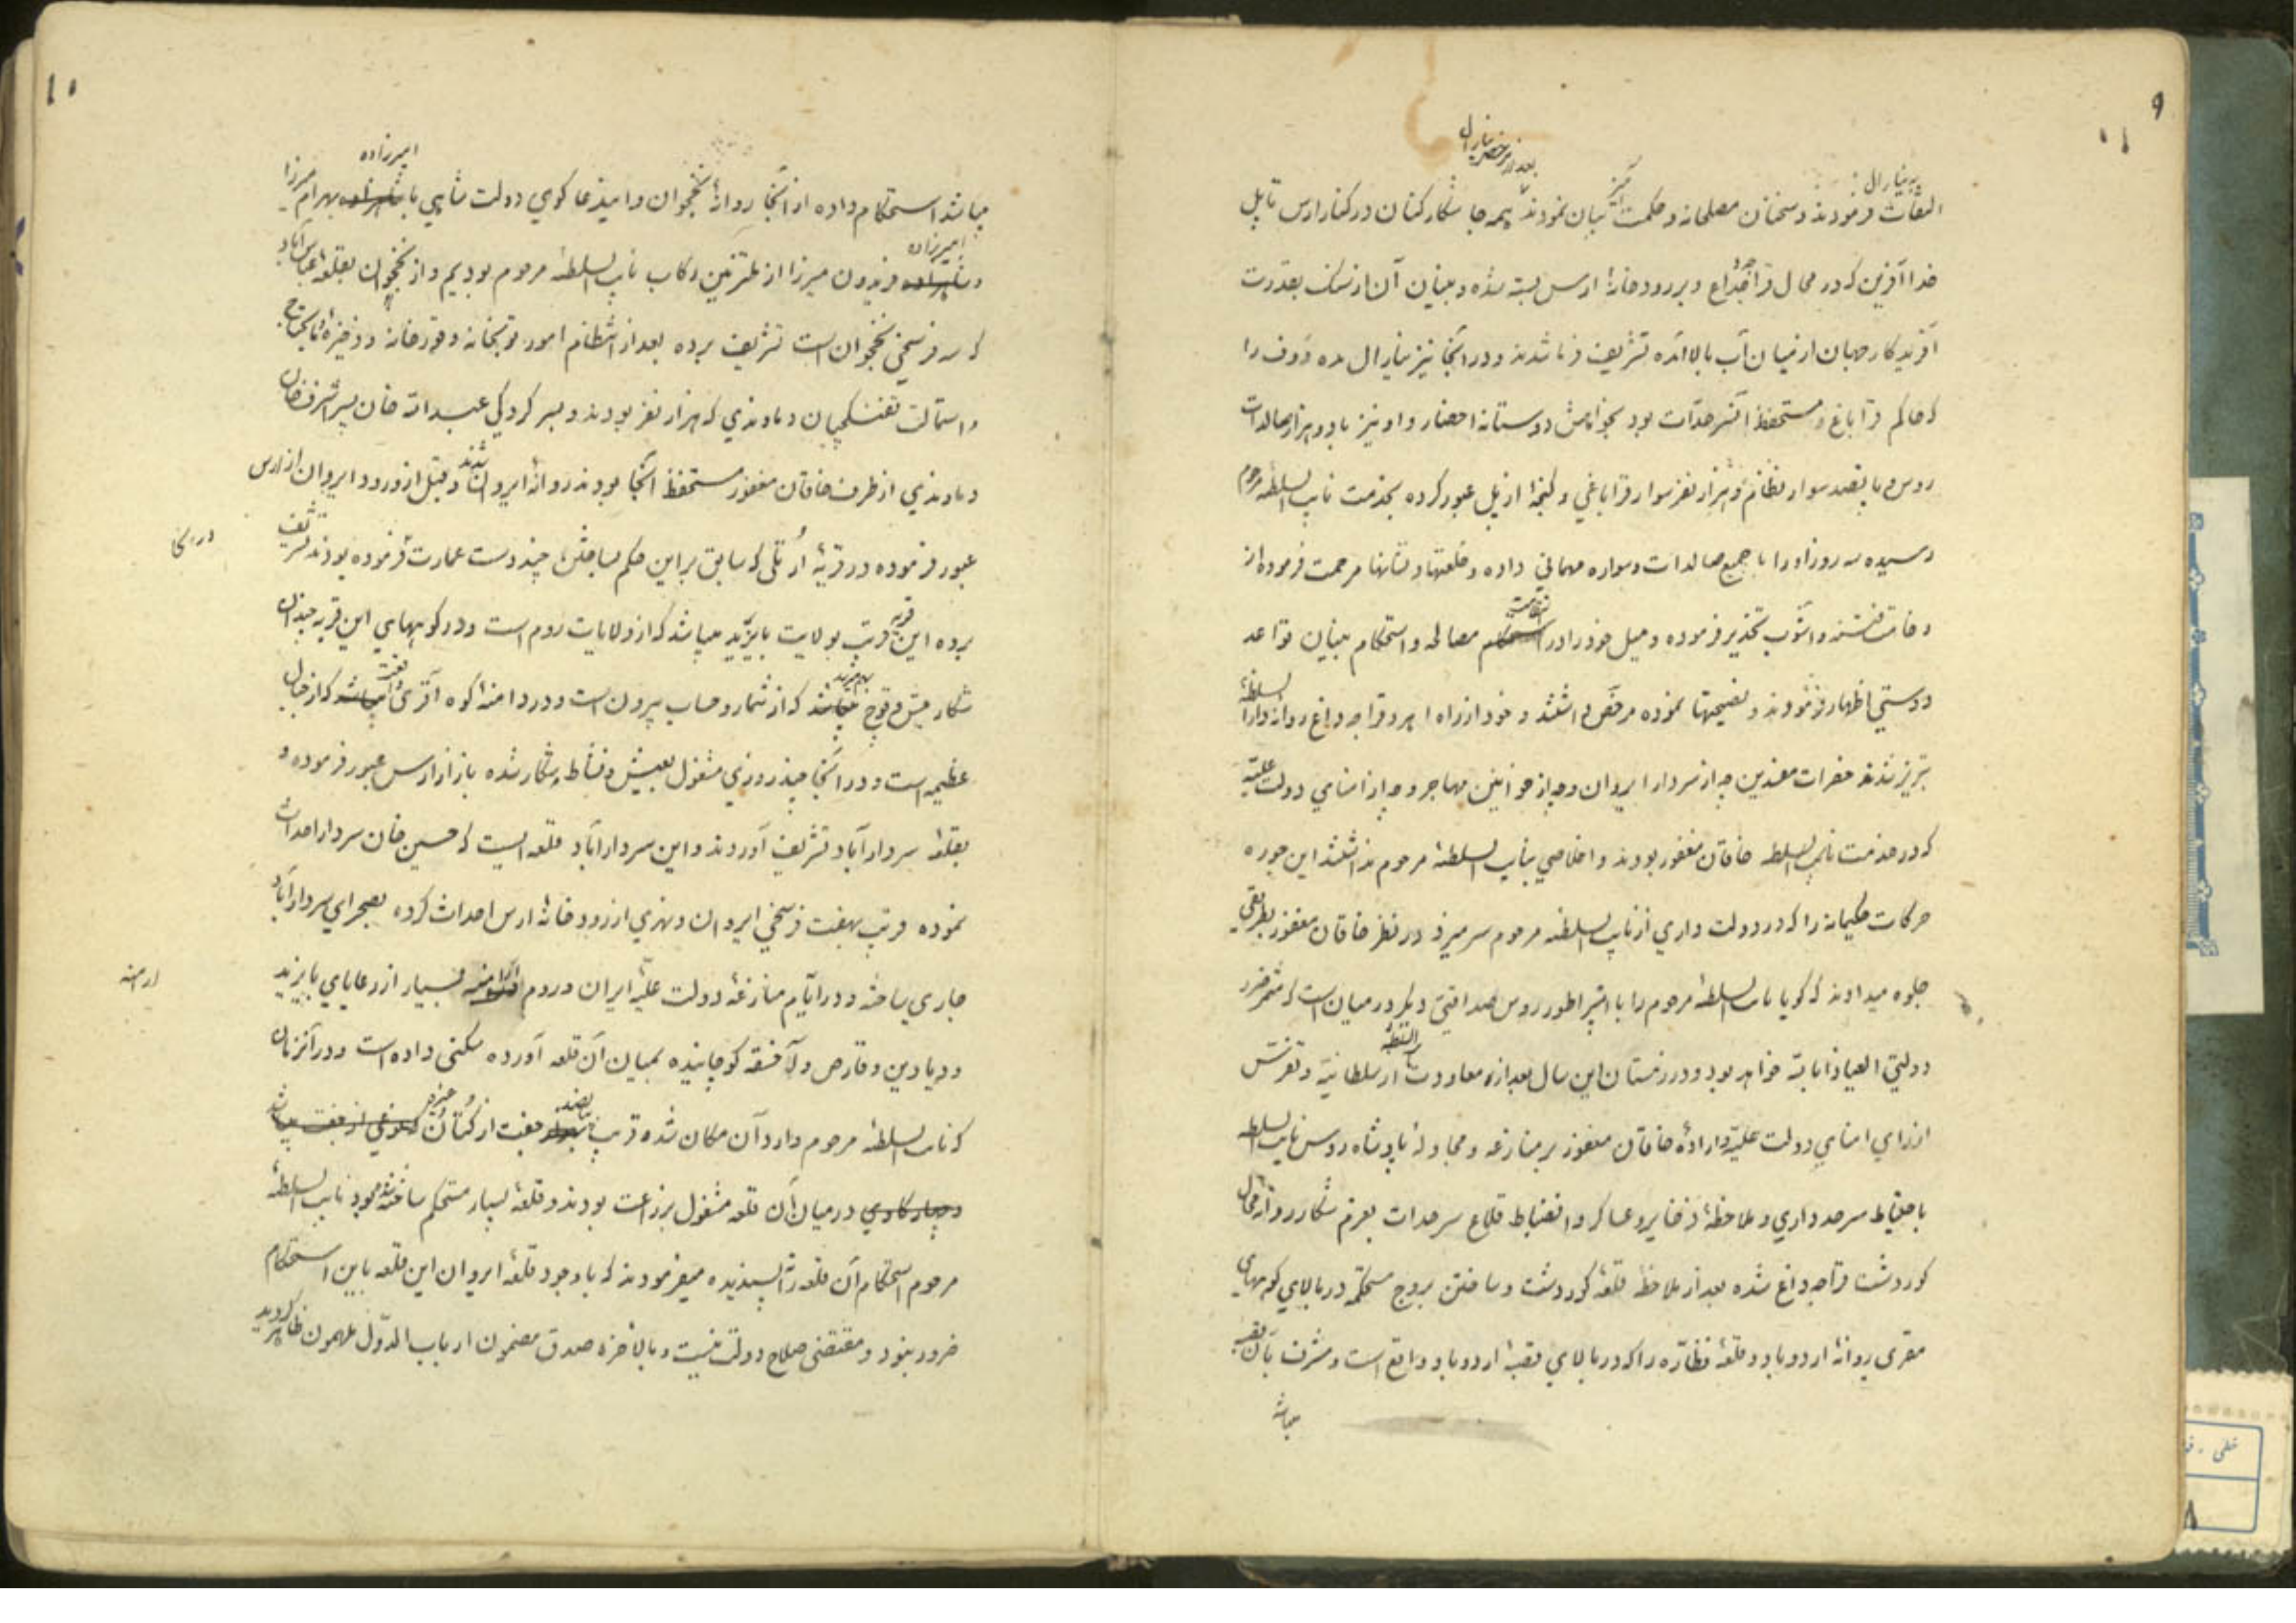 ۹
به ینارال
بعد از مرخصی ینارال
التفات فرمودند و سخنان مصلحانه و حکمت آمیز بیان نمودند همه جا شکار کنان در کنار ارس تا پل
خدا آفرین که در محال قراجه داغ و بر رودخانهٔ ارس بسته شده و بنیان آن از سنگ بقدرت
آفریدگار جهان از میان آب بالا آمده تشریف فرما شدند و در آنجا نیز ینارال مده دوف را
که حاکم قراباغ و مستحفظ اکثر حدات بود بخواهش دوستانه احضار و او نیز با دو هزار صالدات
روس و پانصد سوار نظام و هزار نفر سوار قراباغی و گنجهٔ از پل عبور کرده بخدمت نایب السلطهٔ مرحوم
رسیده سه روز او را با جمیع صالدات و سواره مهمانی داده و خلعتها و نشانها مرحمت فرموده از
وخامت فتنه و آشوب تحذیر فرموده و میل خود را در استحکام مصالحه و استحکام بنیان قواعد
دوستی اظهار فرمودند و نصیحتها نموده مرخص داشتند و خود از راه اهر و قراجه داغ روانهٔ دار السلطنهٔ
تبریز شدند حضرات مفسدین چه از سردار ایروان و چه از خوانین مهاجر و چه از امنای دولت علیّه
که در خدمت نایب السلطه خاقان مغفور بودند و اخلاصی بنایب السلطهٔ مرحوم نداشتند این جوره
حرکات حکیمانه را که در دولت داری از نایب السلطنه مرحوم سر میزد در نظر خاقان مغفور بطریقی
جلوه میدادند که گویا نایب السلطهٔ مرحوم را با امپراطور روس صداقتی دیگر در میان است که مثمر ضرر
دولتی العیاذ بالله خواهد بود و در زمستان این سال بعد از معاودت نایب السلطنه از سلطانیّه و تفرّس
از رای امنای دولت علیّه و ارادهٔ خاقان مغفور بر منازعه و مجادلهٔ با پادشاه روس نایب السلطه
باحتیاط سرحد داری و ملاحظهٔ ذخایر و عساکر و انضباط قلاع سرحدات بعزم شکار روانهٔ محال
کوردشت قراجه داغ شده بعد از ملاحظهٔ قلعهٔ کوردشت و ساختن بروج مستحکمه در بالای کوههای
مقری روانهٔ اردوباد و قلعهٔ نظارّه را که در بالای قصبهٔ اردوباد واقع است و مشرف بآن قصبه
میباشد
۱۰
امیرزاده
میباشد استحکام داده از آنجا روانهٔ نخجوان و امید دعا گوی دولت شاهی با شاهزاده بهرام میرزا
امیرزاده
و شاهزاده فریدون میرزا از ملتزمین رکاب نایب السلطهٔ مرحوم بودیم و از نخجوان بقلعهٔ عباس آباد
که سه فرسخی نخجوان است تشریف برده بعد از انتظام امور توپخانه و قورخانه و ذخیره و مایحتاج
و استمالت تفنگچیان دماوندی که هزار نفر بودند و بسر کردگی عبدالله خان پسر اشرف خان
دماوندی از طرف خاقان مغفور مستحفظ آنجا بودند روانهٔ ایروان شدند و قبل از ورود ایروان از ارس
عبور فرموده در قریهٔ ارتلی که سابق بر این حکم بساختن چند دست عمارت فرموده بودند تشریف
برده این قریه قریب بولایت بایزید میباشد که از ولایات روم است و در کوههای این قریه چندان
شکار میش و قوچ میباشد که از شمار و حساب بیرون است و در دامنهٔ کوه آقری میباشد که از جبال
عظیمه است و در آنجا چند روزی مشغول بعیش و نشاط و شکار شده باز از ارس عبور فرموده و
بقلعهٔ سردار آباد تشریف آوردند و این سردار آباد قلعه ایست که حسین خان سردار احداث
نموده قریب بهفت فرسخی ایروان و نهری از رودخانهٔ ارس احداث کرده بصحرای سردار آباد
جاری ساخته و در ایّام منازعهٔ دولت علیّهٔ ایران و روم ارامنه بسیار از رعایای بایزید
ارامنه
و دیادین و قارص و آخسقه کوچانیده بمیان آن قلعه آورده سکنی داده است و در آنزمان
که نایب السلطهٔ مرحوم وارد آن مکان شده قریب پانصد جفت از کتان و غیره
و چهار گاوی در میان آن قلعه مشغول بزراعت بودند و قلعهٔ بسیار مستحکم ساخته شده بود نایب السلطهٔ
مرحوم استحکام آن قلعه را نپسندیده میفرمودند که با وجود قلعهٔ ایروان این قلعه باین استحکام
ضرور نبود و مقتضی صلاح دولت نیست و بالاخره صدق مضمون ارباب الدّول ملهمون ظاهر گردید